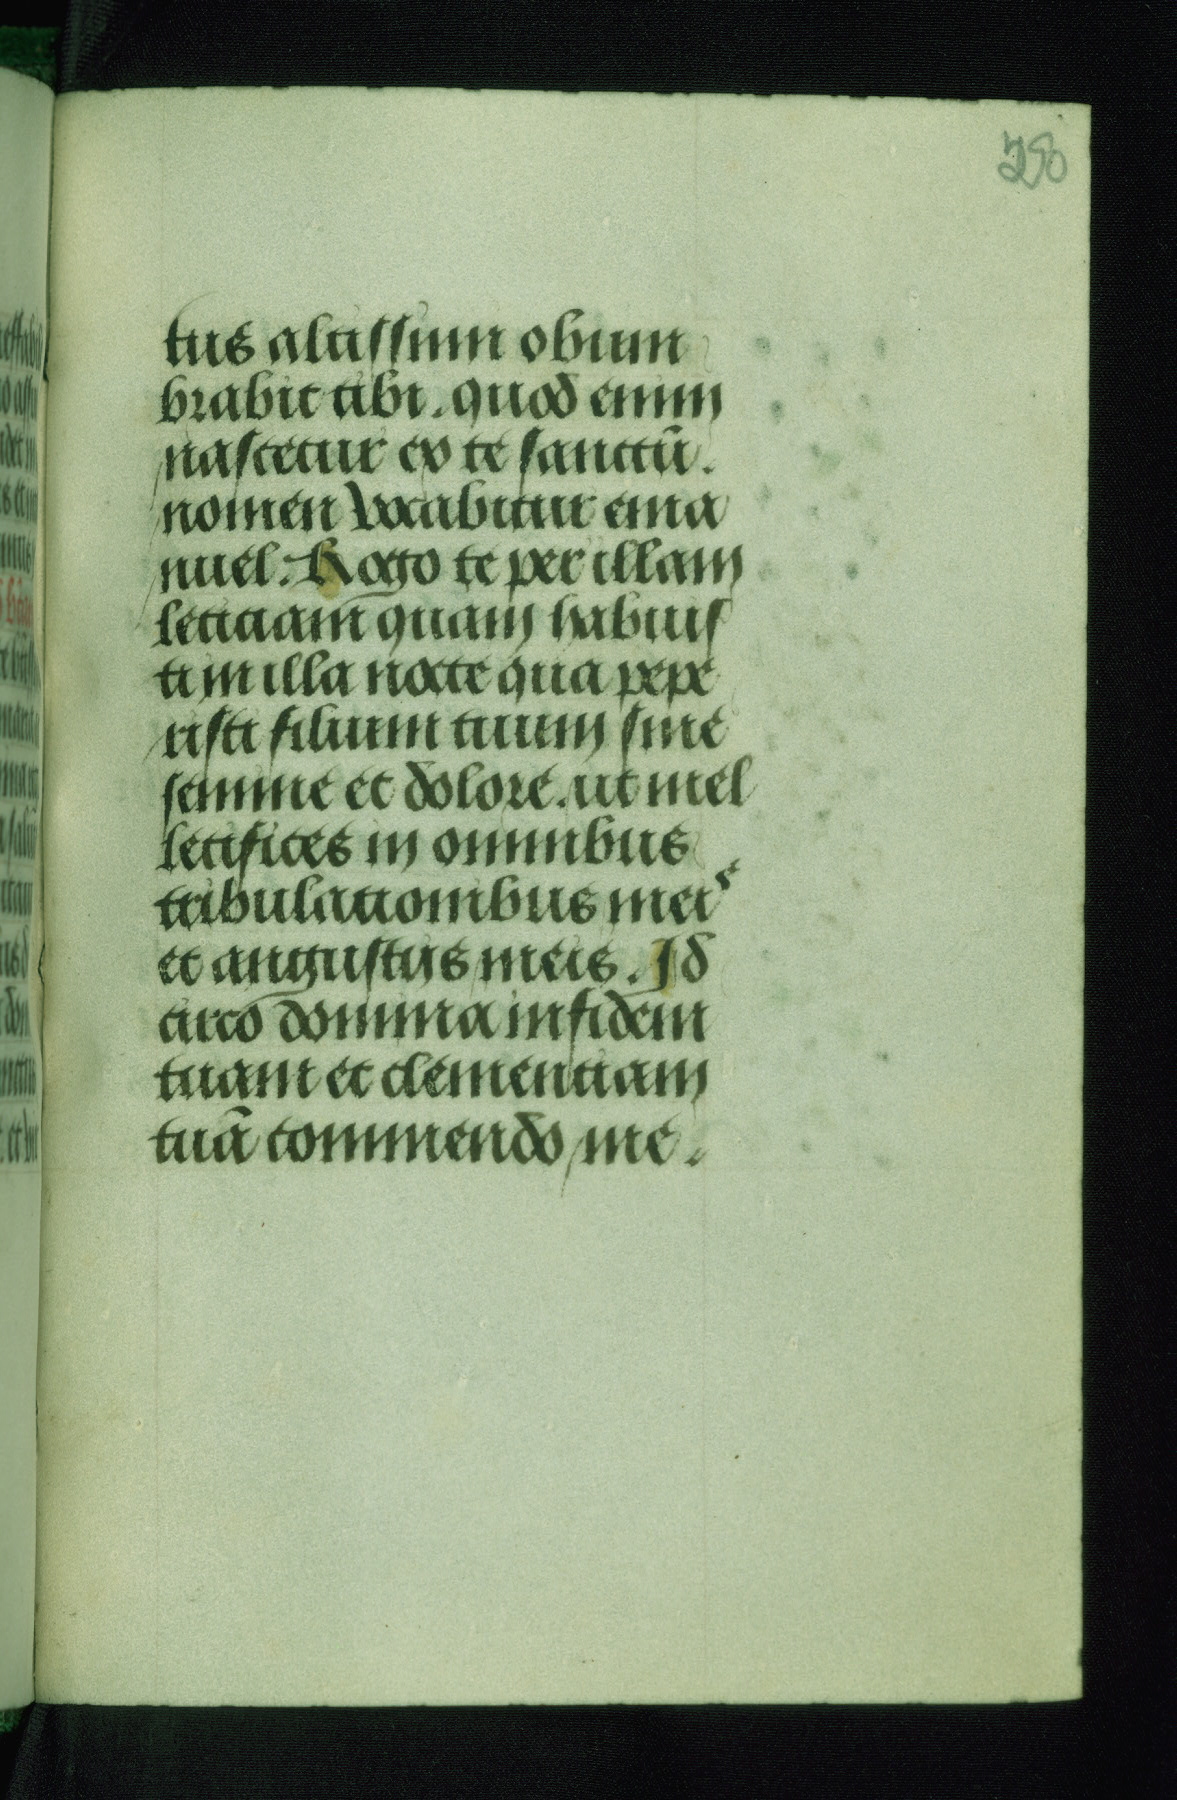 28
tus altissimi obum
brabit tibi. quod enim
nascetur ex te sanctū.
nomen vocabitur ema
nuel. Rogo te per illam
leticiam quam habuis
ti in illa nocte qua pepe
risti filium tuum sine
semine et dolore. ut me
letifices in omnibus
tribulationibus meis
et angustijs meis. Id
circo domina in fidem
tuam et clementiam
tuā commendo me.